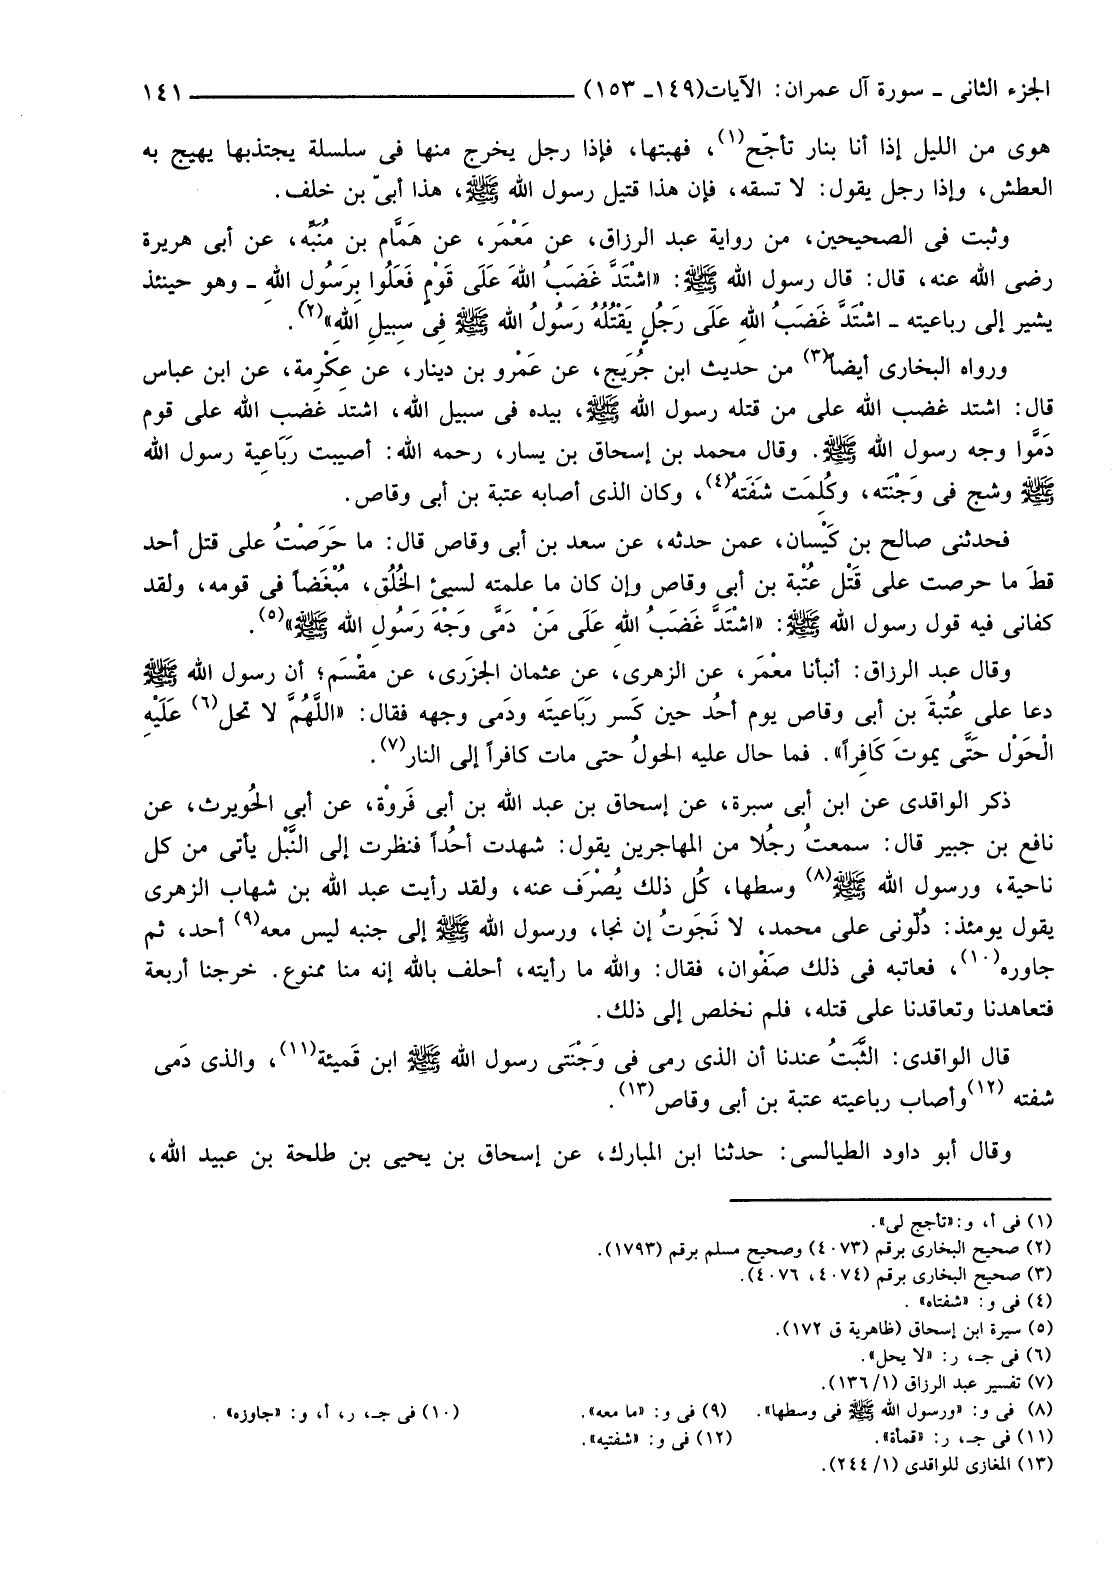 الجزء الثانى ـ سورة آل عمران: الآيات(١٤٩ـ ١٥٣) ١٤١
هوى من الليل إذا أنا بنار تأجّح(١)، فهبتها، فإذا رجل يخرج منها فى سلسلة يجتذبها يهيج به
العطش، وإذا رجل يقول: لا تسقه، فإن هذا قتيل رسول الله ﷺ، هذا أبىّ بن خلف.
وثبت فى الصحيحين، من رواية عبد الرزاق، عن مَعْمَر، عن هَمَّام بن مُنَبِّه، عن أبى هريرة
رضى الله عنه، قال: قال رسول الله ﷺ: «اشْتَدَّ غَضَبُ اللهَ عَلَى قَوْمٍ فَعَلُوا بِرَسُولِ اللهِ ـ وهو حينئذ
يشير إلى رباعيته ـ اشْتَدَّ غَضَبُ اللهِ عَلَى رَجُلٍ يَقْتُلُهُ رَسُولُ اللهِ ﷺ فِى سبِيلِ اللهِ»(٢).
ورواه البخارى أيضاً(٣) من حديث ابن جُرَيج، عن عَمْرو بن دينار، عن عِكْرِمة، عن ابن عباس
قال: اشتد غضب الله على من قتله رسول الله ﷺ، بيده فى سبيل الله، اشتد غضب الله على قوم
دَمَّوا وجه رسول الله ﷺ. وقال محمد بن إسحاق بن يسار، رحمه الله: أصيبت رَبَاعِية رسول الله
ﷺ وشج فى وَجْنَته، وكُلِمَت شَفَتهُ(٤)، وكان الذى أصابه عتبة بن أبى وقاص.
فحدثنى صالح بن كَيْسان، عمن حدثه، عن سعد بن أبى وقاص قال: ما حَرَصْتُ على قتل أحد
قطَ ما حرصت على قَتْل عُتْبة بن أبى وقاص وإن كان ما علمته لسيئ الخُلُق، مُبْغَضاً فى قومه، ولقد
كفانى فيه قول رسول الله ﷺ: «اشْتَدَّ غَضَبُ اللهِ عَلَى مَنْ دَمَّى وَجْهَ رَسُولِ الله ﷺ»(٥).
وقال عبد الرزاق: أنبأنا معْمَر، عن الزهرى، عن عثمان الجزَرى، عن مقْسَم؛ أن رسول الله ﷺ
دعا على عُتبةَ بن أبى وقاص يوم أحُد حين كَسر رَبَاعيته ودَمى وجهه فقال: «اللَّهُمَّ لا تحل(٦) عَلَيْهِ
الْحَوْل حَتَّى يموتَ كَافِراً». فما حال عليه الحولُ حتى مات كافراً إلى النار(٧).
ذكر الواقدى عن ابن أبى سبرة، عن إسحاق بن عبد الله بن أبى فَروْة، عن أبى الحُويرث، عن
نافع بن جبير قال: سمعتُ رجُلا من المهاجرين يقول: شهدت أحُداً فنظرت إلى النَّبْل يأتى من كل
ناحية، ورسول الله ﷺ(٨) وسطها، كُل ذلك يُصْرَف عنه، ولقد رأيت عبد الله بن شهاب الزهرى
يقول يومئذ: دُلّونى على محمد، لا نَجَوتُ إن نجا، ورسول الله ﷺ إلى جنبه ليس معه(٩) أحد، ثم
جاوره(١٠)، فعاتبه فى ذلك صَفْوان، فقال: والله ما رأيته، أحلف بالله إنه منا ممنوع. خرجنا أربعة
فتعاهدنا وتعاقدنا على قتله، فلم نخلص إلى ذلك.
قال الواقدى: الثَّبَتُ عندنا أن الذى رمى فى وَجْنَتى رسول الله ﷺ ابن قَميئة(١١)، والذى دَمى
شفته (١٢)وأصاب رباعيته عتبة بن أبى وقاص(١٣).
وقال أبو داود الطيالسى: حدثنا ابن المبارك، عن إسحاق بن يحيى بن طلحة بن عبيد الله،
(١) فى أ، و:«تأجج لى».
(٢) صحيح البخارى برقم (٤٠٧٣) وصحيح مسلم برقم (١٧٩٣).
(٣) صحيح البخارى برقم (٤٠٧٤، ٤٠٧٦).
(٤) فى و: «شفتاه» .
(٥) سيرة ابن إسحاق (ظاهرية ق ١٧٢).
(٦) فى جـ، ر: «لا يحل».
(٧) تفسير عبد الرزاق (١٣٦/١).
(٨) فى و: «ورسول الله ﷺ فى وسطها». (٩) فى و: «ما معه». (١٠) فى جـ، ر، أ، و: «جاوزه» .
(١١) فى جـ، ر: «قمأة». (١٢) فى و: «شفتيه».
(١٣) المغازى للواقدى (٢٤٤/١).